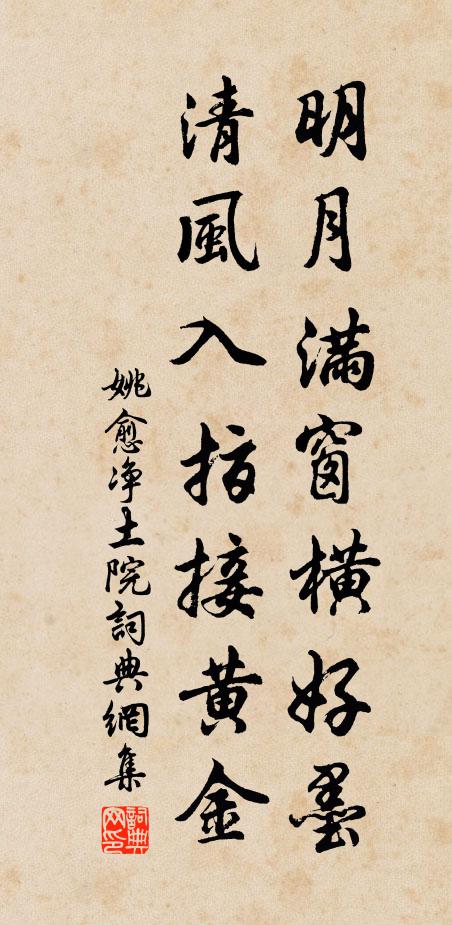 明月滿窗橫好墨
清風入指接黃金
姚愈净土院詞典網集
詞典网印